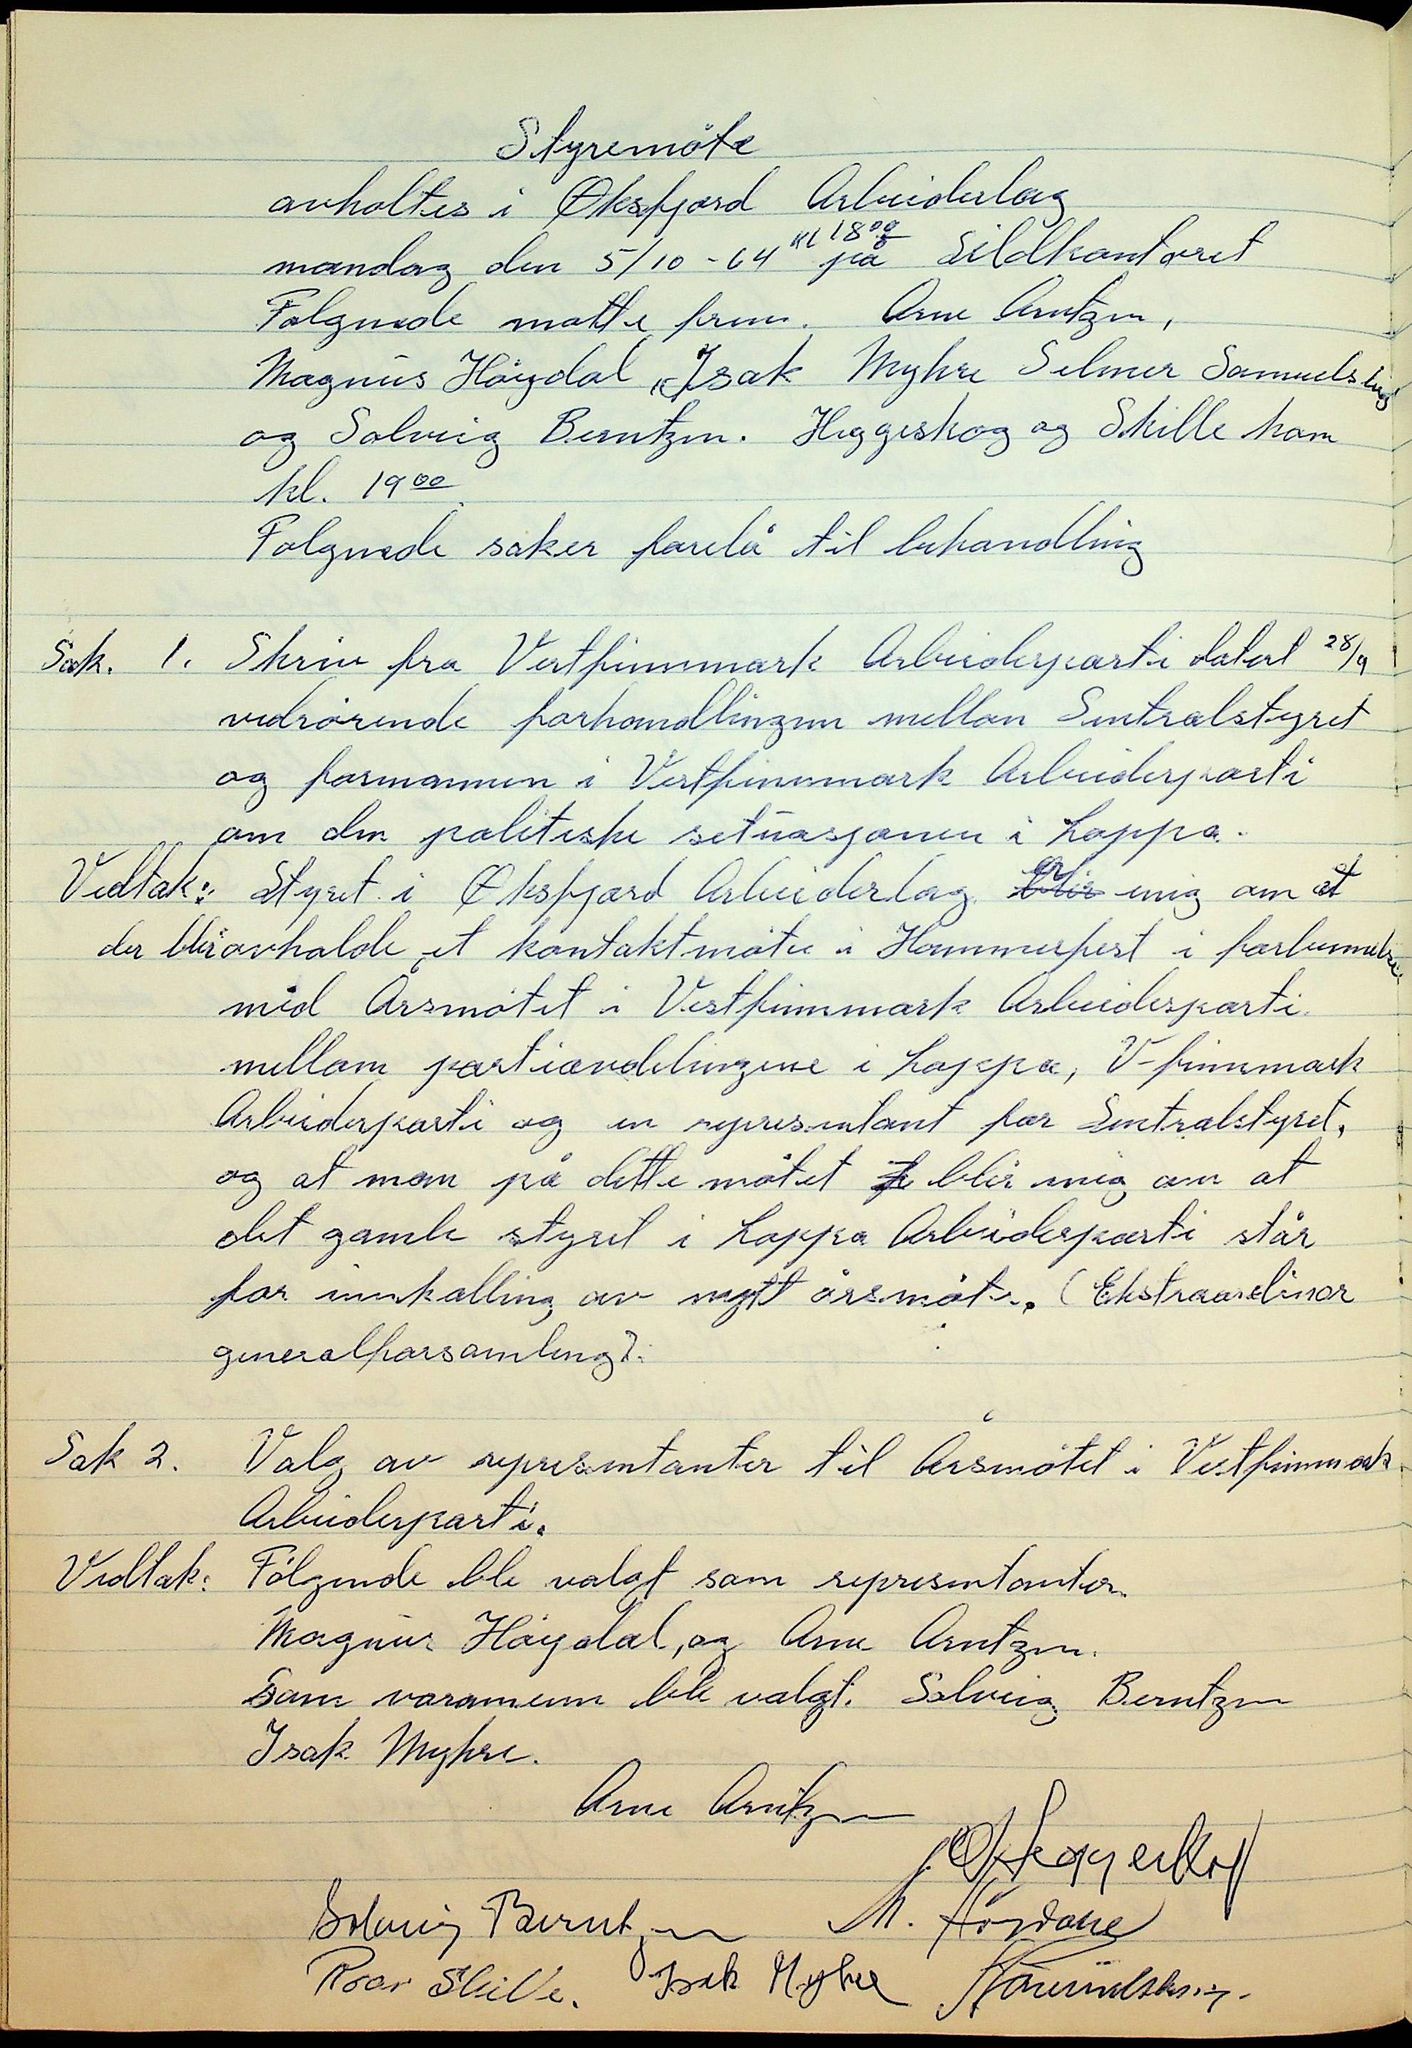 Styremöte
avholtes i Øksfjord Arbeiderlag
mandag den 5/10 - 64 kl 18⁰⁰ på Sildkontoret
Følgnede møtte frem. Arne Arntzen,
Magnus Høydal, Isak Myhre Selmer Samuelsen
og Solveig Berntzen. Heggeskog og Skille kom
kl. 19⁰⁰
Følgnede saker forelå til behandling
Sak. 1. Skriv fra Vestfinnmark Arbeiderparti datert 28/9
vedrørende forhandlingen mellon Sentralstyret
og formannen i Vestfinnmark Arbeiderparti
om den politiske setuasjonen i Loppa.
Vedtak: Styret i Øksfjord Arbeiderlag er enig om at
der blir avholde et kontaktmøte i Hammerfest i forbinnelse
med Årsmøtet i Vestfinnmark Arbeiderparti
mellom partiavdelingene i Loppa, V-finnmark
Arbeiderparti og en representant for Sentralstyret,
og at man på dette møtet blir enig om at
det gamle styret i Loppa Arbeiderparti står
for innkalling av nytt årsmøte. (Ekstraordinær
generalforsamling).
Sak 2. Valg av representanter til Årsmøtet i Vestfinnmark
Arbeiderparti.
Vedtak: Følgende ble valgt som representanter.
Magnus Høydal, og Arne Arntzen.
Som varamenn ble valgt. Solveig Berntzen
Isak Myhre.
Arne Arntzen
Heggeskog
Solveig Berntzen M. Høydal
Roar Skille. Isak Myhre S Samuelsen.